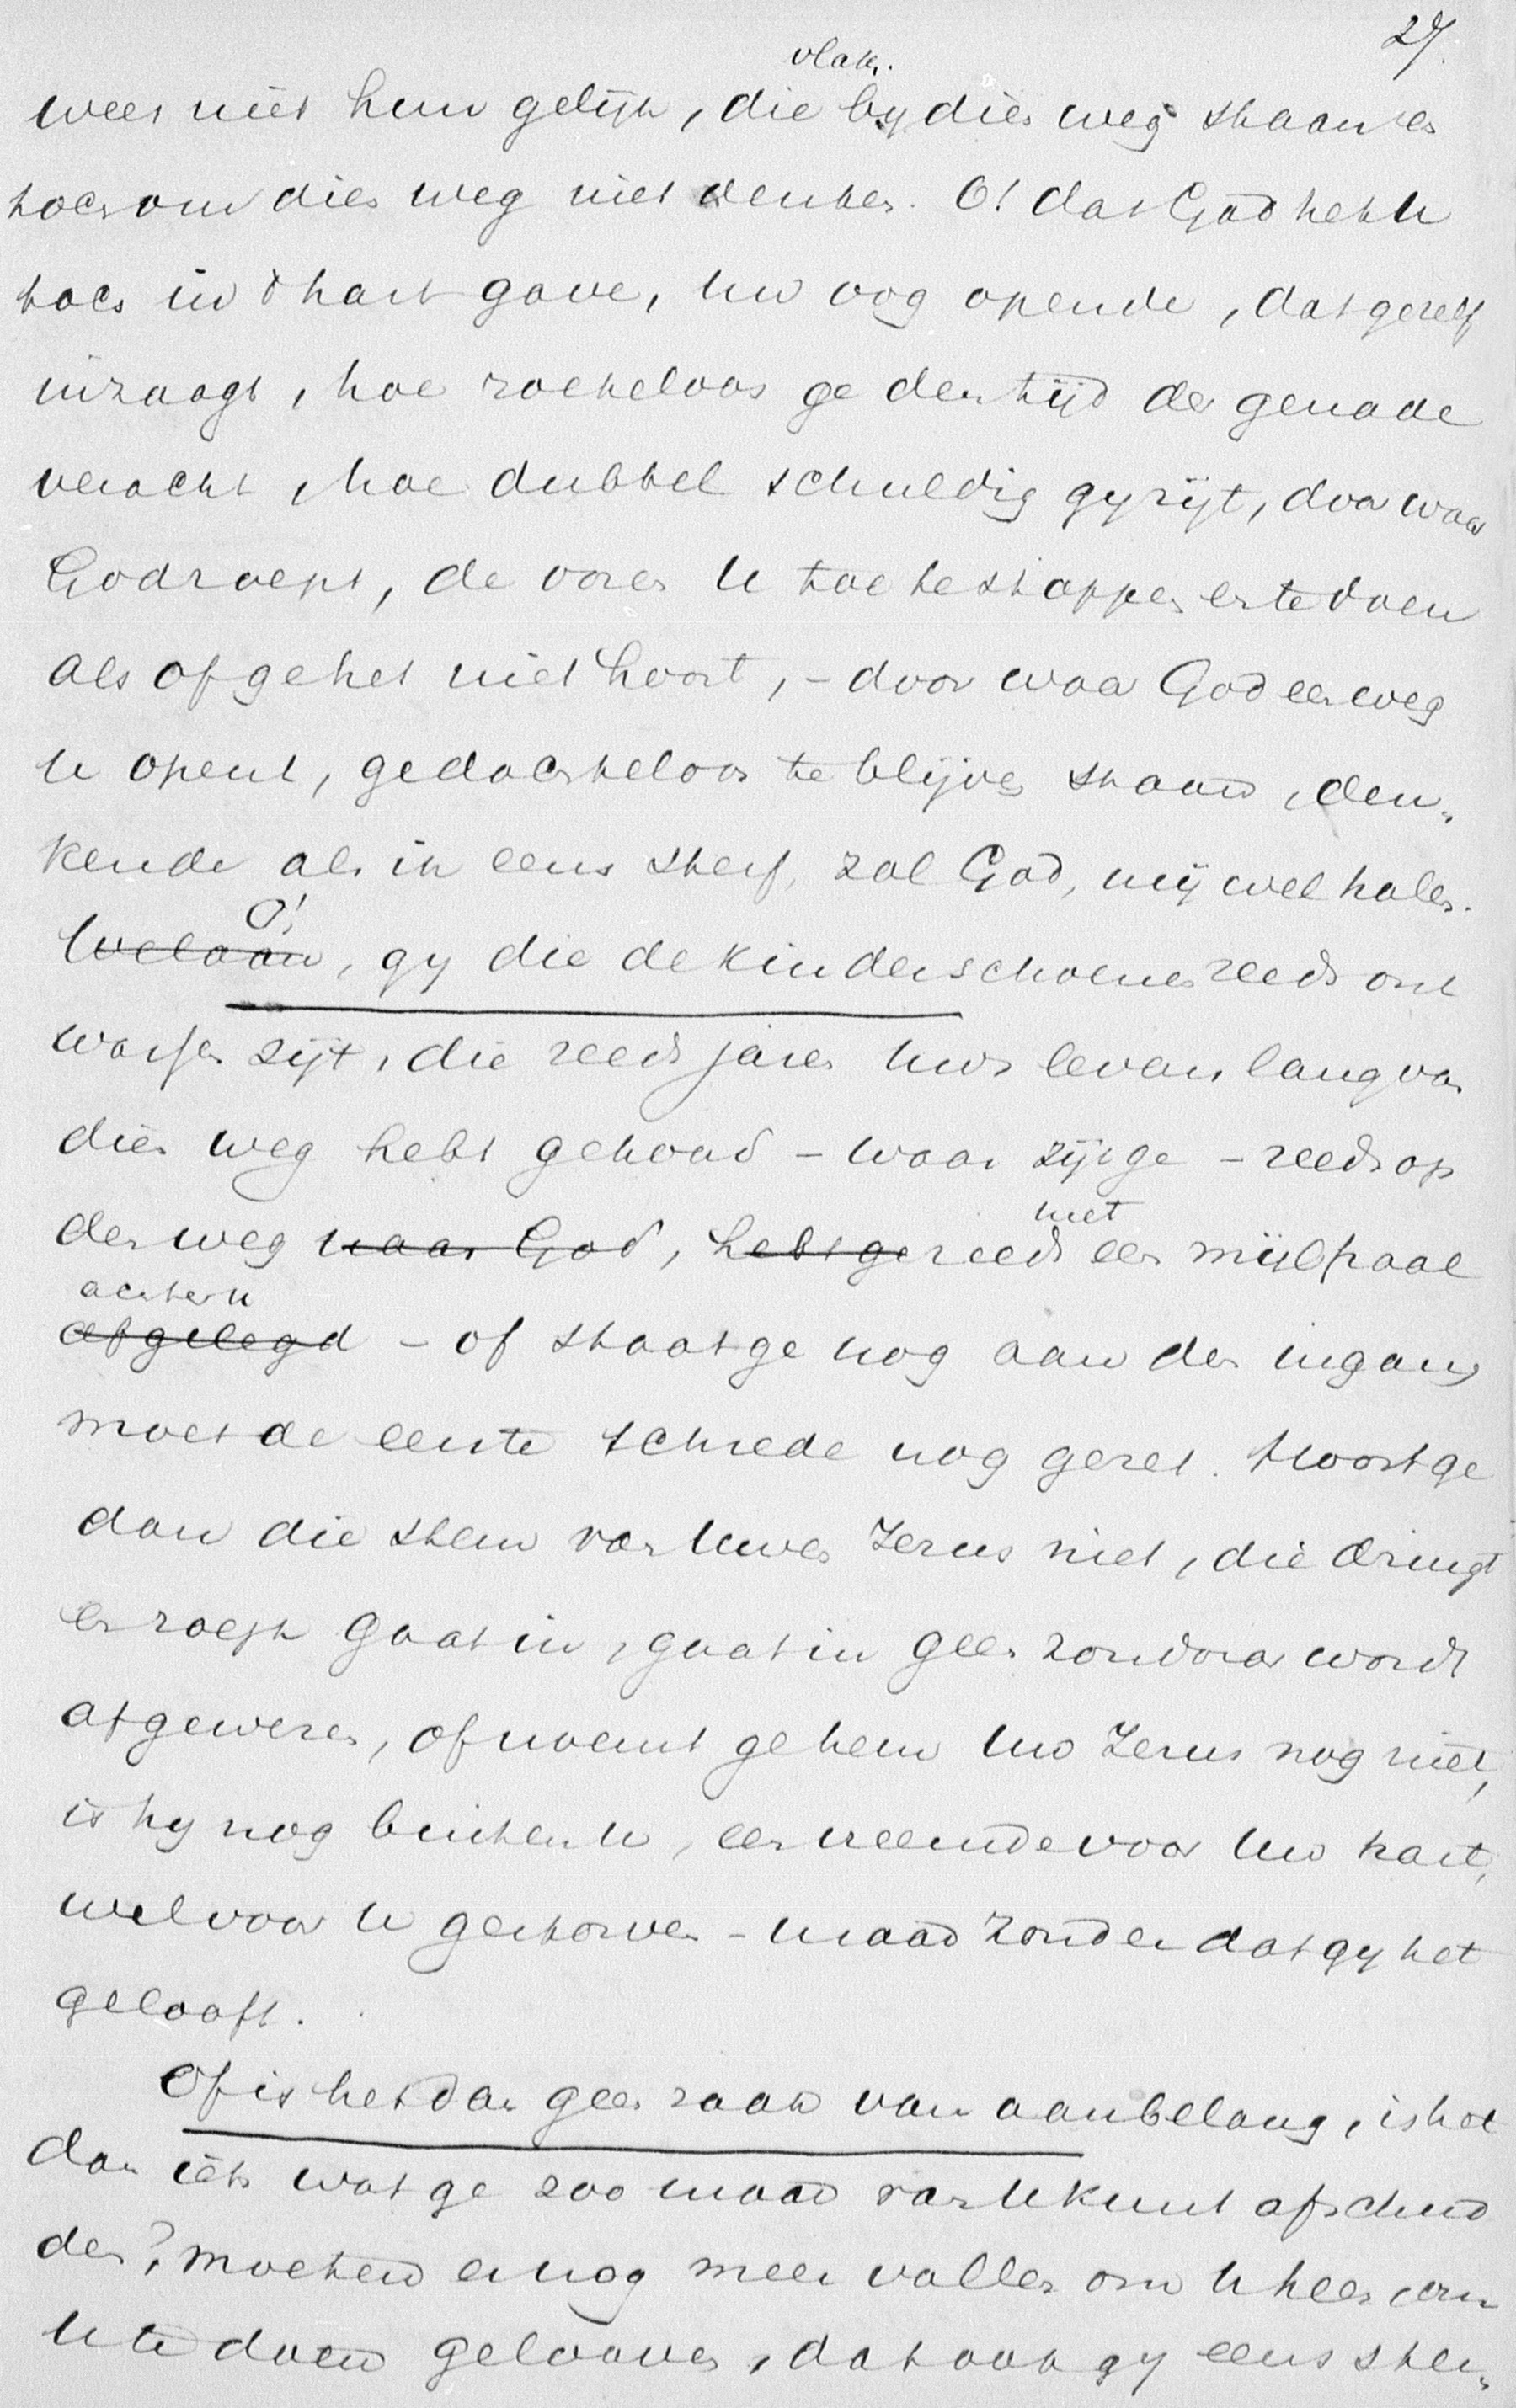 27.
vlak
wees niet hun gelijk, die by dien weg staan en
toch om dien weg niet denken. O! dat God het U
toch in 't hart gave, Uw oog opende, dat ge zelf
inzaagt, hoe roekeloos ge den tijd der genade
veracht, hoe dubbel schuldig gy zijt, door waar
God roept, de ooren U toe te stoppen en te doen
als of ge het niet hoort, - door waar God een weg
U opent, gedachteloos te blijven staan, den„
kende als ik eens sterf, zal God, mij wel halen.
O!
Welaan, gy die de kinderschoenen reeds ont
wassen zijt, die reeds jaren Uws levens lang van
dien weg hebt gehoord - waar zijt ge - reeds op
met
den weg naar God, hebt ge reeds een mijlpaal
achter U
afgelegd - of staat ge nog aan den ingang
moet de eerste schrede nog gezet. Hoort ge
dan die stem van Uwen Jezus niet, die dringt
en roept gaat in, gaat in geen zondaar wordt
afgewezen, of noemt ge hem Uw Jezus nog niet,
is hy nog buiten U, een vreemde voor Uw hart,
wel voor U gestorven - maar zonder dat gy het
gelooft.
Of is het dan geen zaak van aanbelang, is het
dan iets wat ge zoo maar van U kunt afschud
den? moeten er nog meer vallen om U heen, om
U te doen gelooven, dat ook gy eens ster„